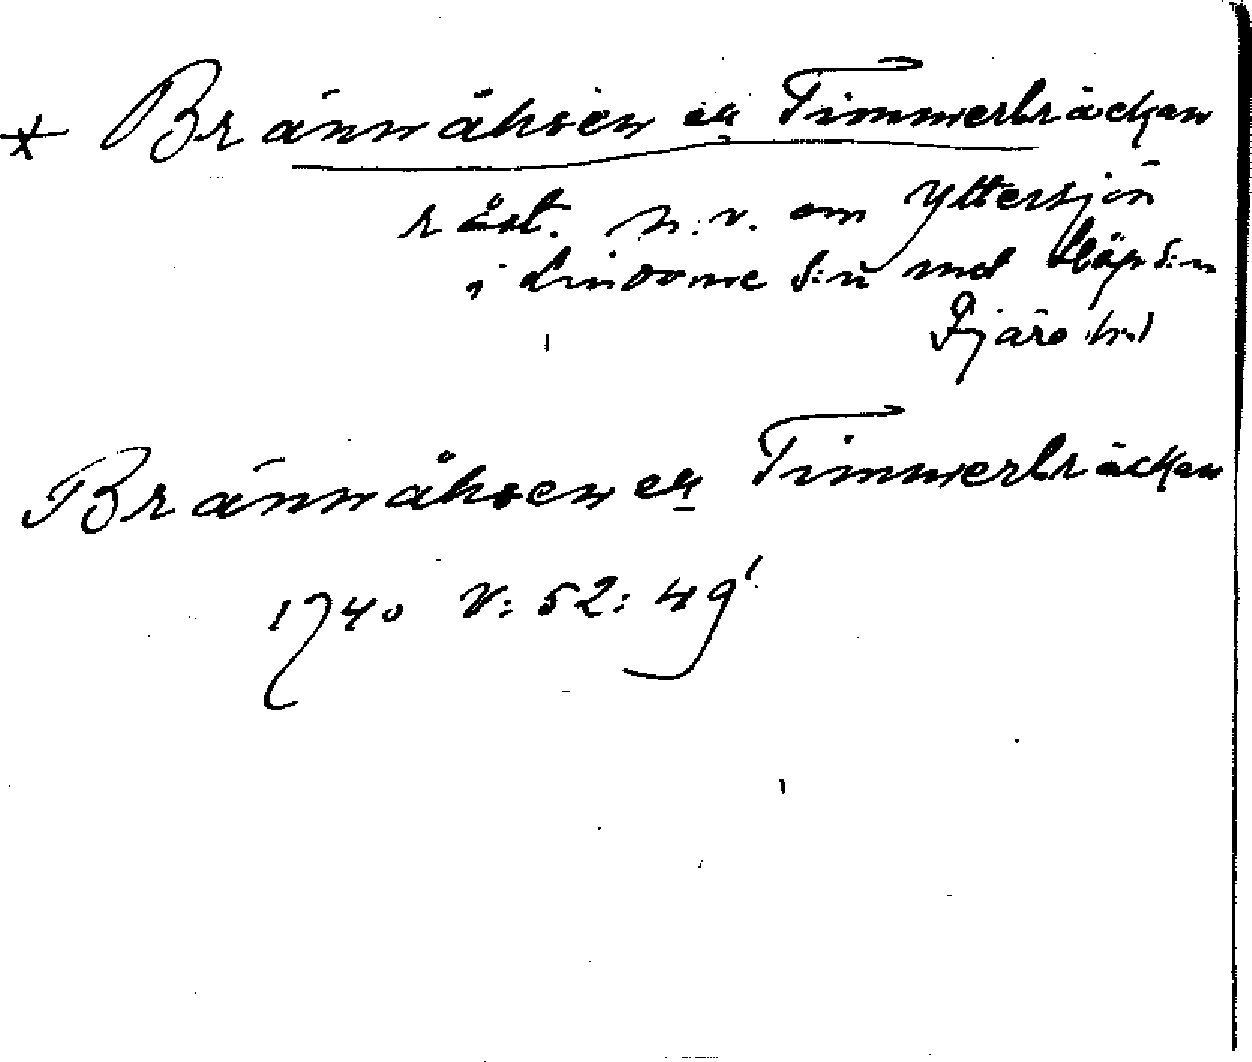 * Brännåhsen el Timmerbräcken
råst. n.v. om Yttersjön
i Lindome s:n mot Släp s:n
Fjäre hd
Brännåhsen el Timmerbräcken
1740 V: 52: 49'